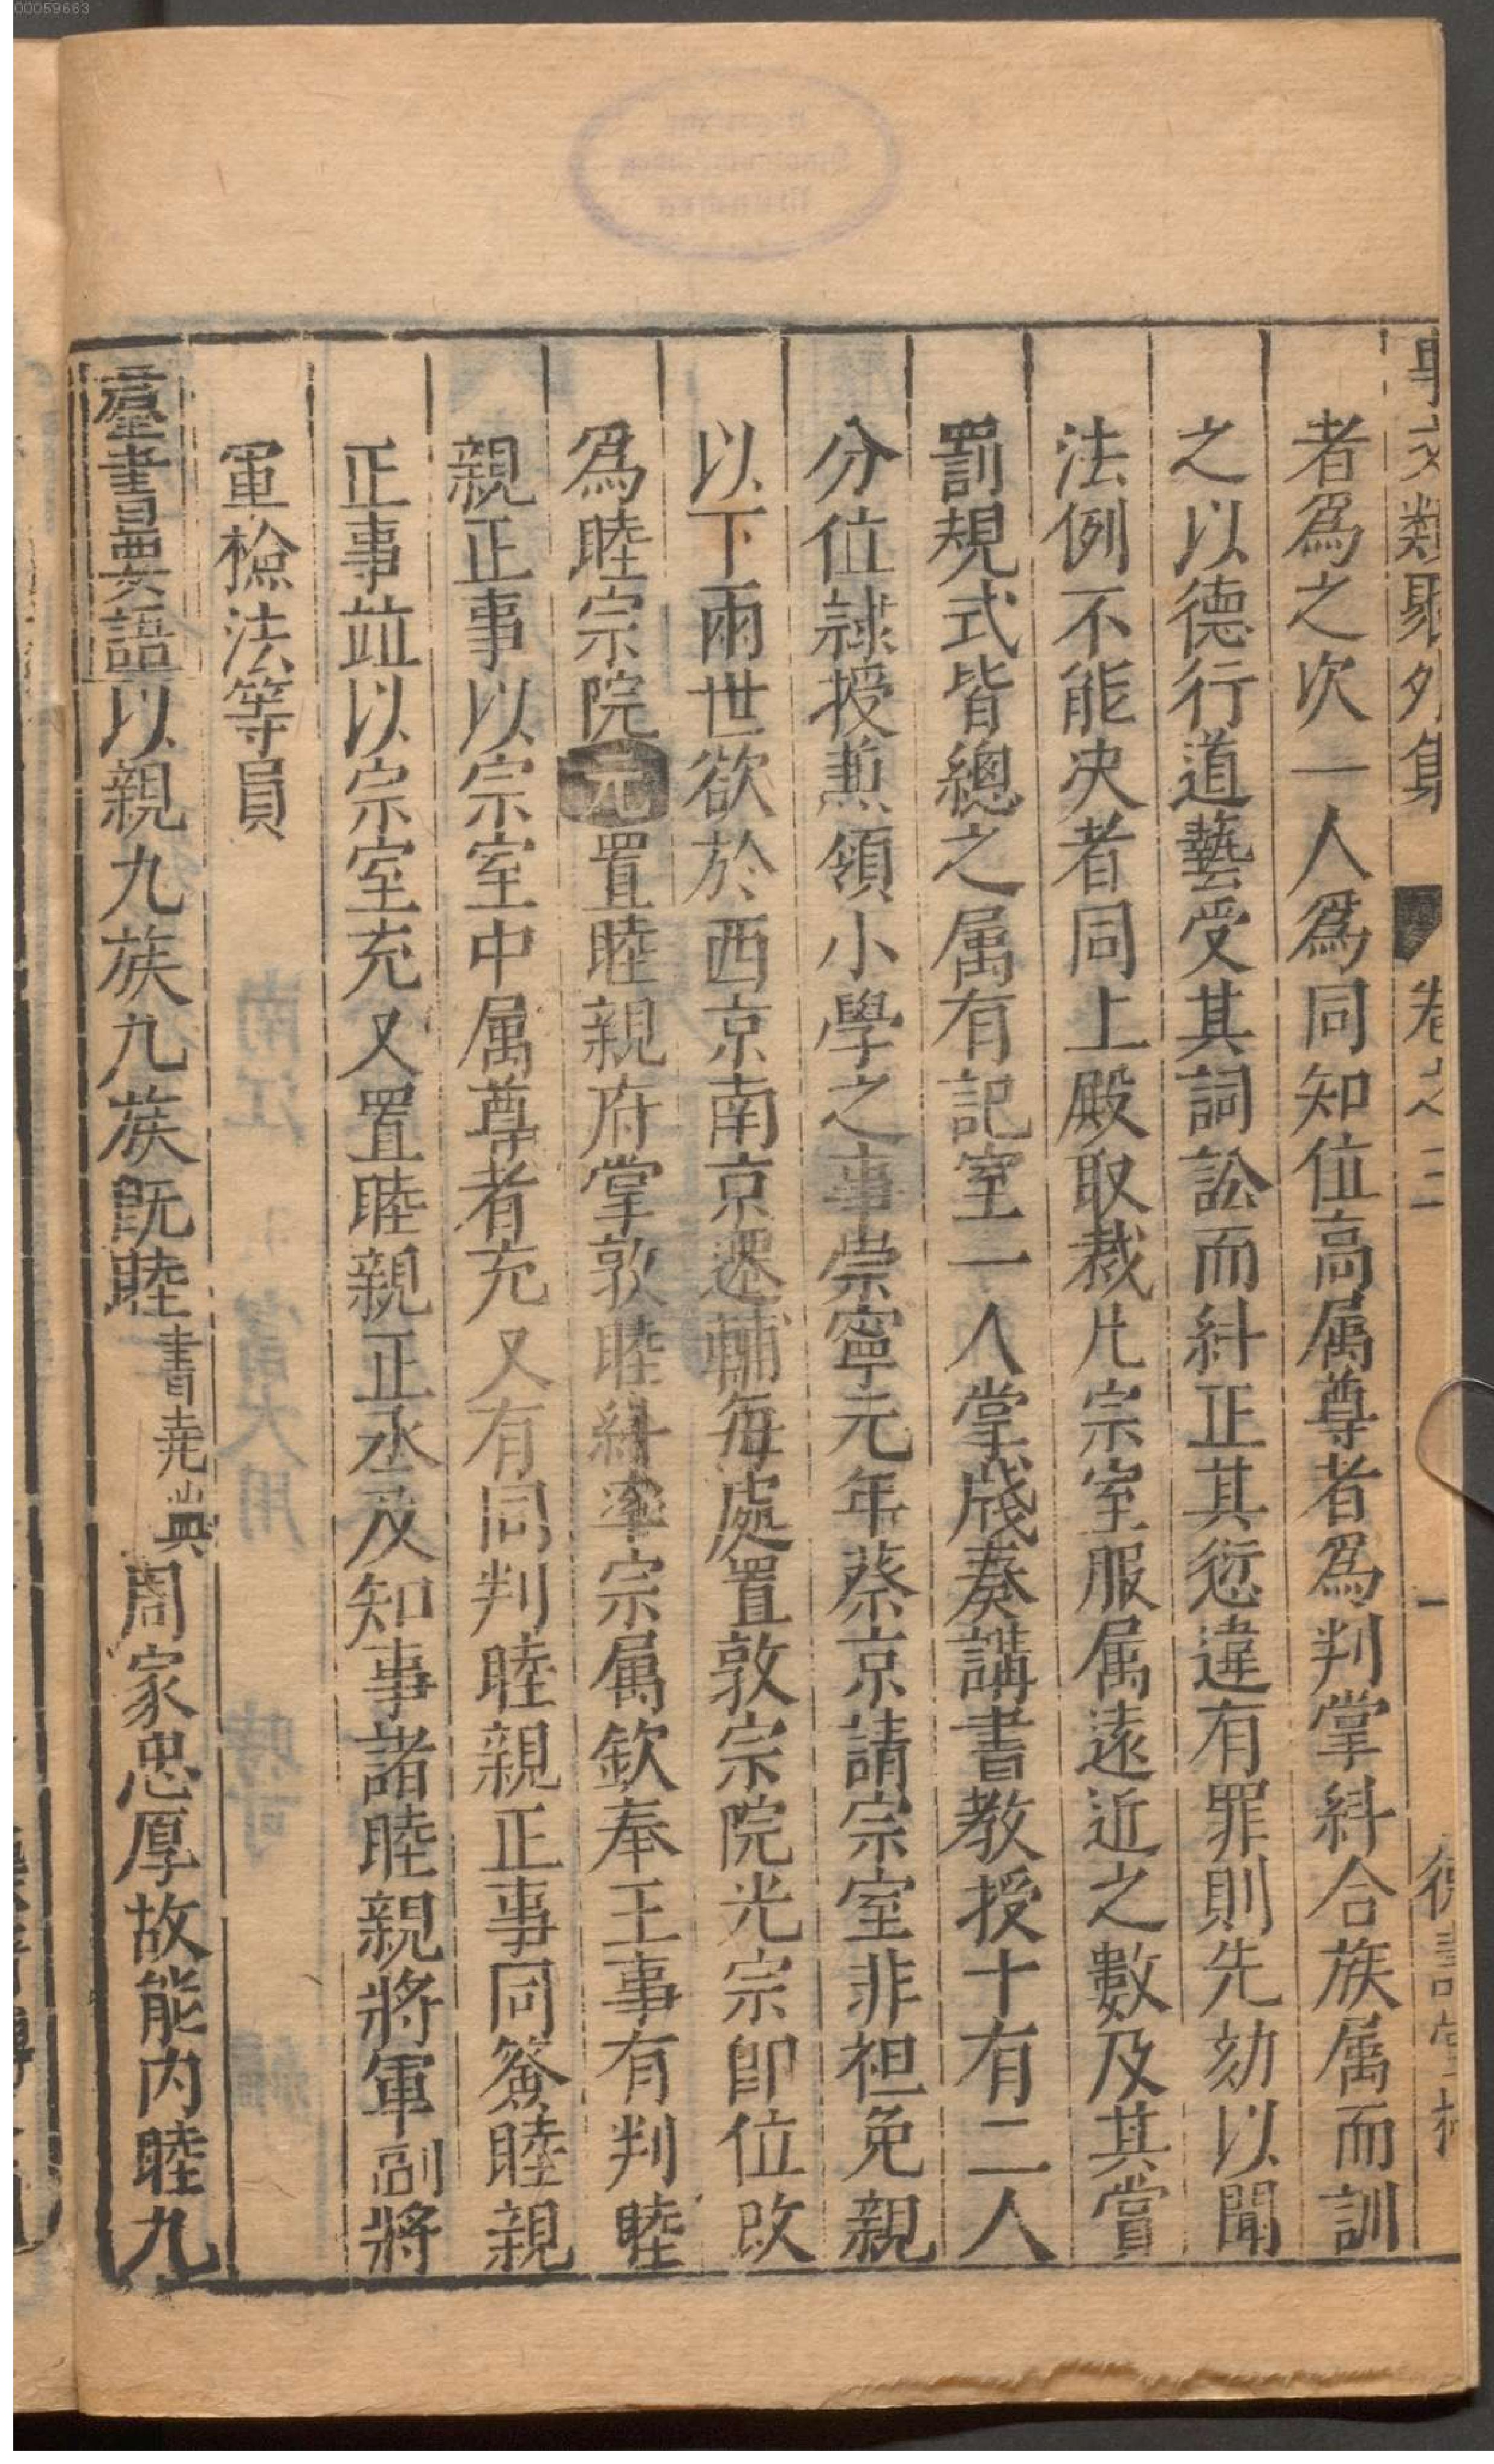 00059663
事文類聚外集 卷之三 一 德壽堂梓
者爲之次一人爲同知位高属尊者爲判掌糾合族属而訓
之以德行道藝受其詞訟而糾正其愆違有罪則先劾以聞
法例不能决者同上殿取裁凡宗室服属遠近之數及其賞
罰規式皆總之属有記室一人掌牋奏講書教授十有二人
分位隷授兼領小學之事崇寧元年蔡京請宗室非袒免親
以下兩世欲於西京南京近輔每處置敦宗院光宗卽位改
爲睦宗院元置睦親府掌敦睦糾率宗属欽奉王事有判睦
親正事以宗室中属尊者充又有同判睦親正事同簽睦親
正事並以宗室充又置睦親正丞及知事諸睦親將軍副將
軍檢法等員
羣書要語以親九族九族既睦書堯典周家忠厚故能内睦九